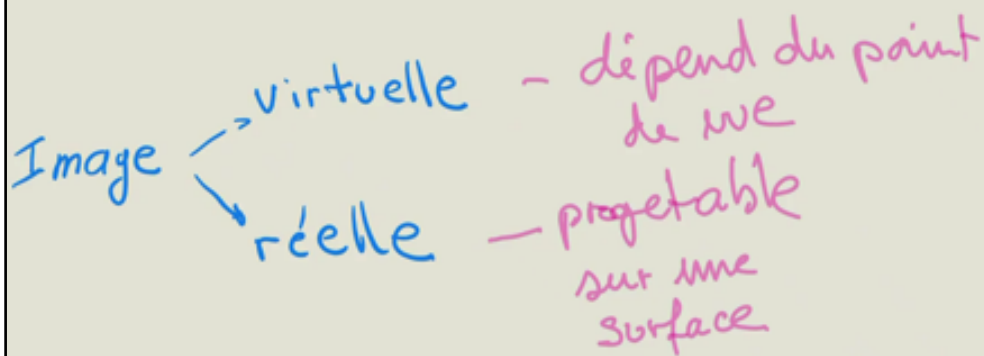 virtuelle - dépend du point
de vue
Image
réelle - progetable
sur une
surface